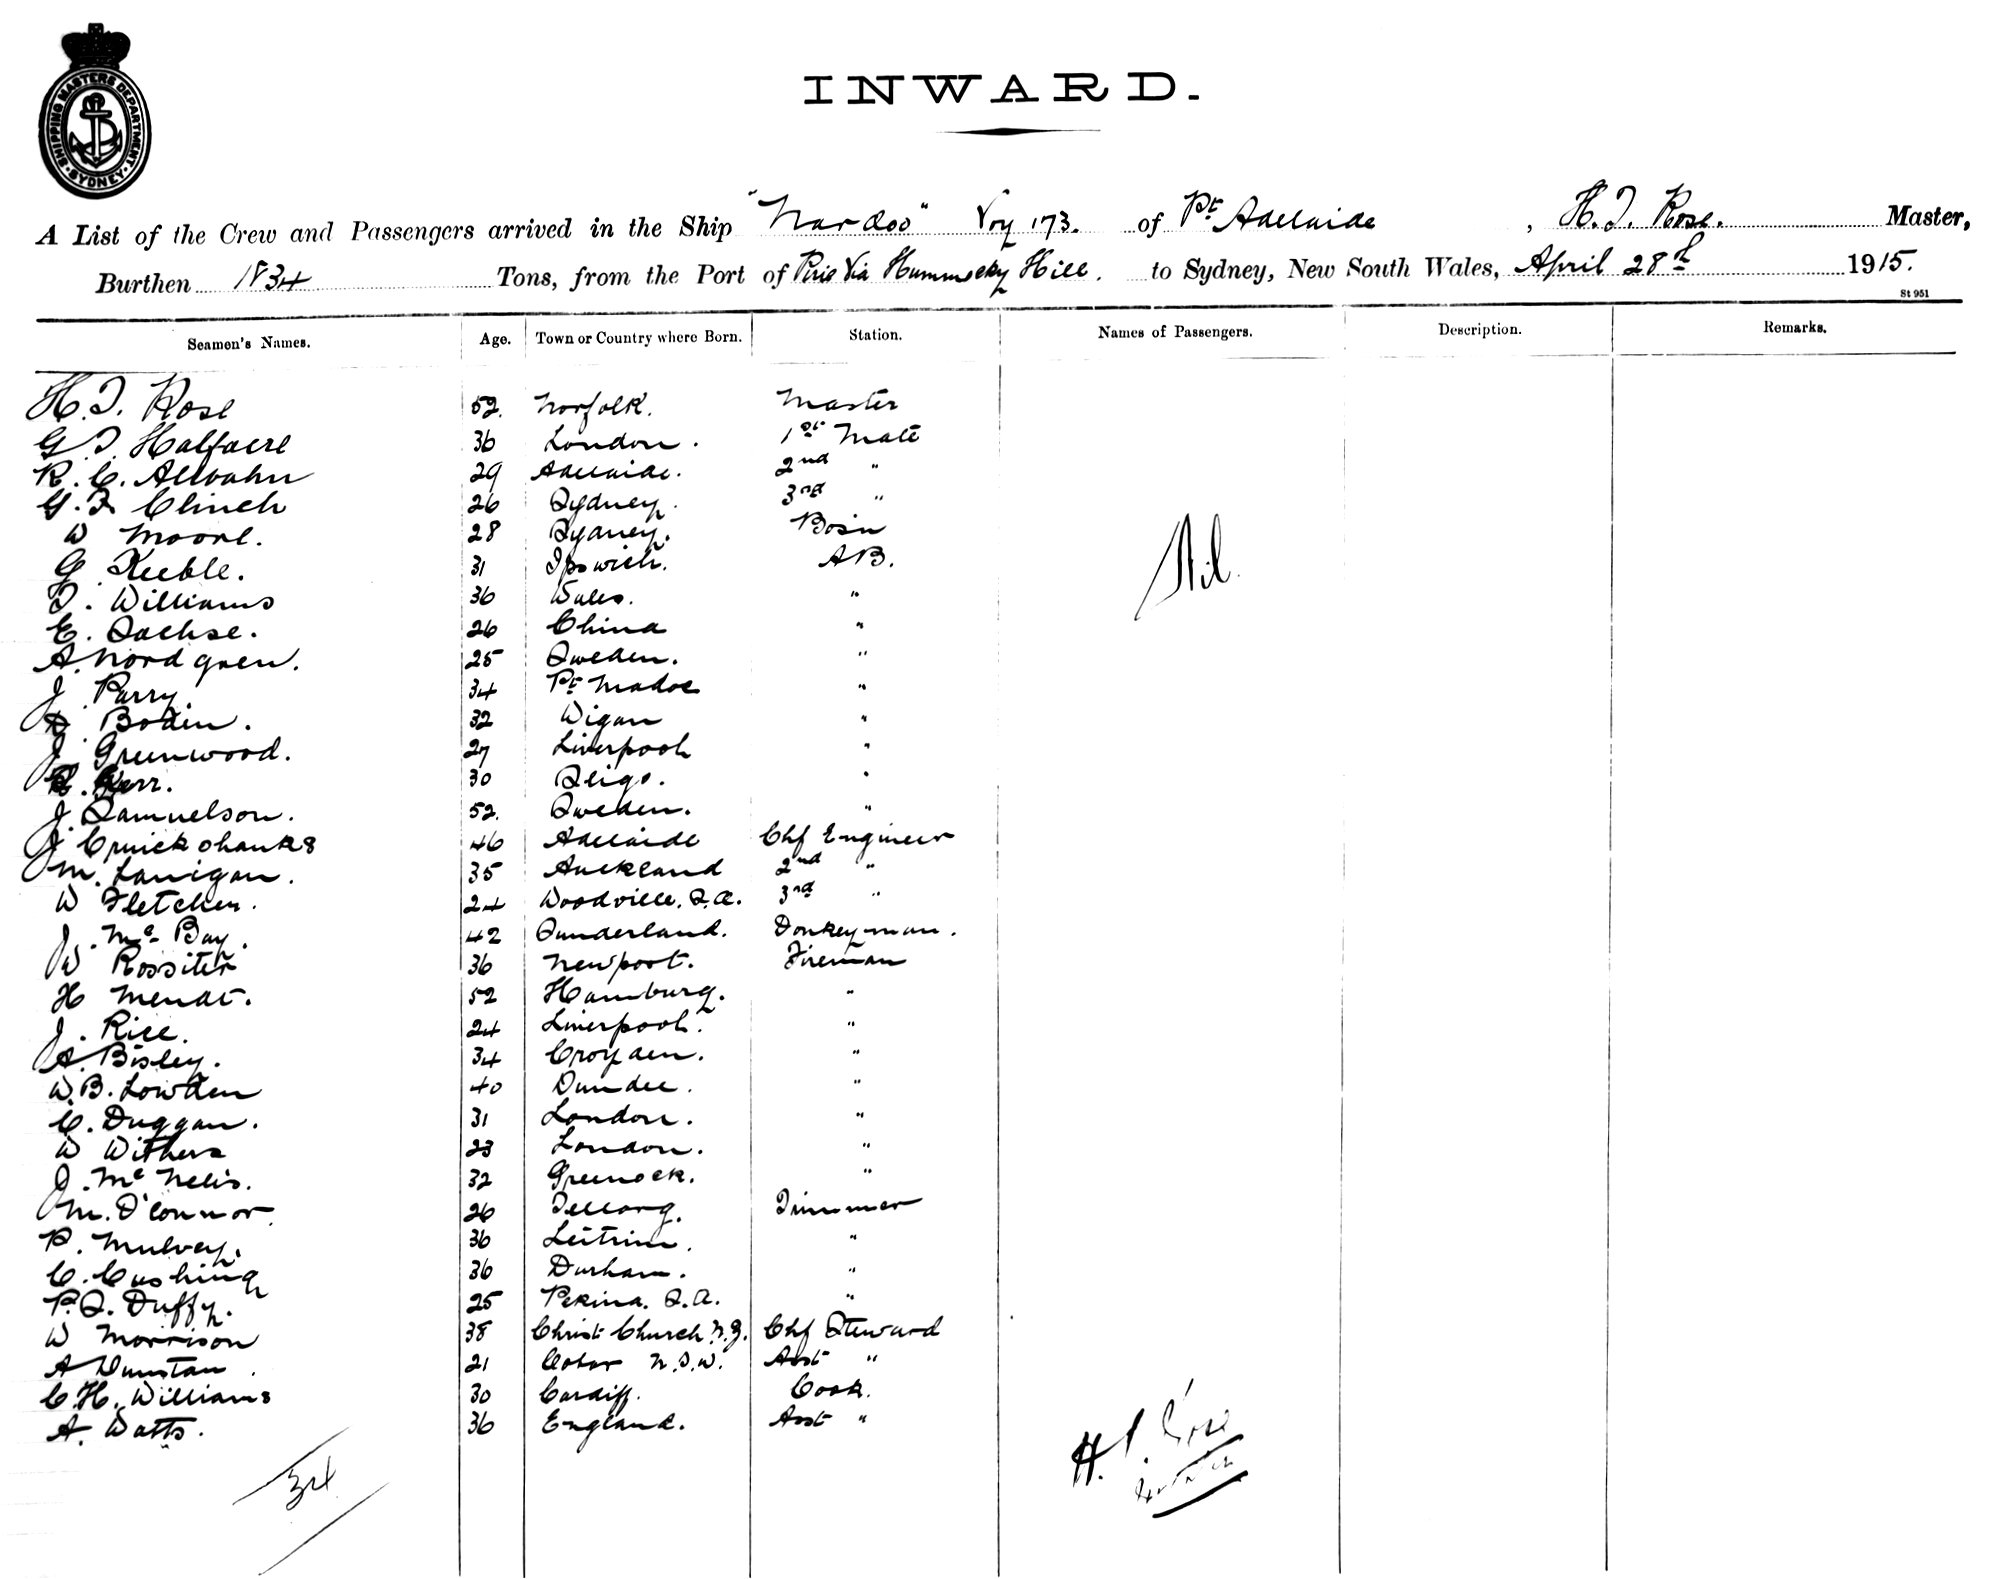 SHIPPING MASTERS DEPARTMENT · SYDNEY ·
INWARD.
A List of the Crew and Passengers arrived in the Ship "Nardoo" Voy 173. of Pt Adelaide, H. T. Rose. Master,
Burthen 1834 Tons, from the Port of Pirie Via Hummocky Hill. to Sydney, New South Wales, April 28th 1915.
St 951
Seamen's Names. Age. Town or Country where Born. Station. Names of Passengers. Description. Remarks.
H. T. Rose 52. Norfolk. Master
G T Halfacre 36 London. 1st Mate
R. C. 29 Adelaide. 2nd "
G. F. Clinch 26 Sydney. 3rd "
W Moore. 28 Sydney. Bosn
G Keeble. 31 Ipswich. AB.
Nil.
T. Williams 36 Wales. "
E. Sachse. 26 China "
A. Nordgren. 25 Sweden. "
J Parry. 34 Pt Madoc "
Boden. 32 Wigan "
J Greenwood. 27 Liverpool "
Kerr. 30 Sligo. "
J. Samuelson. 52. Sweden. "
J Cruickshanks 46 Adelaide Chf Engineer
M. Lanigan. 35 Auckland 2nd "
W Fletcher. 24 Woodville. S.A. 3rd "
J. Mc Bay. 42 Sunderland. Donkeyman.
W Rossiter 36 Newport. Fireman
H Mendt. 52 Hamburg. "
J. Rice. 24 Liverpool. "
A. Bisley. 34 Croyden. "
W. B. Lowden 40 Dundee. "
C. Duggan. 31 London. "
W Withers 23 London. "
J. Mc Nelis. 32 Greenock. "
M. O'Connor 26 Trimmer
P. Mulvey. 36 Leitrim. "
C. Cushing 36 Durham. "
P. S. Duffy. 25 Pekina. S.A. "
W Morrison 38 Christ Church N.Z. Chf Steward
A Dunstan. 21 Cobar N.S.W. Asst "
C. H. Williams 30 Cardiff. Cook.
A. Watts. 36 England. Asst "
H. T. Rose
34